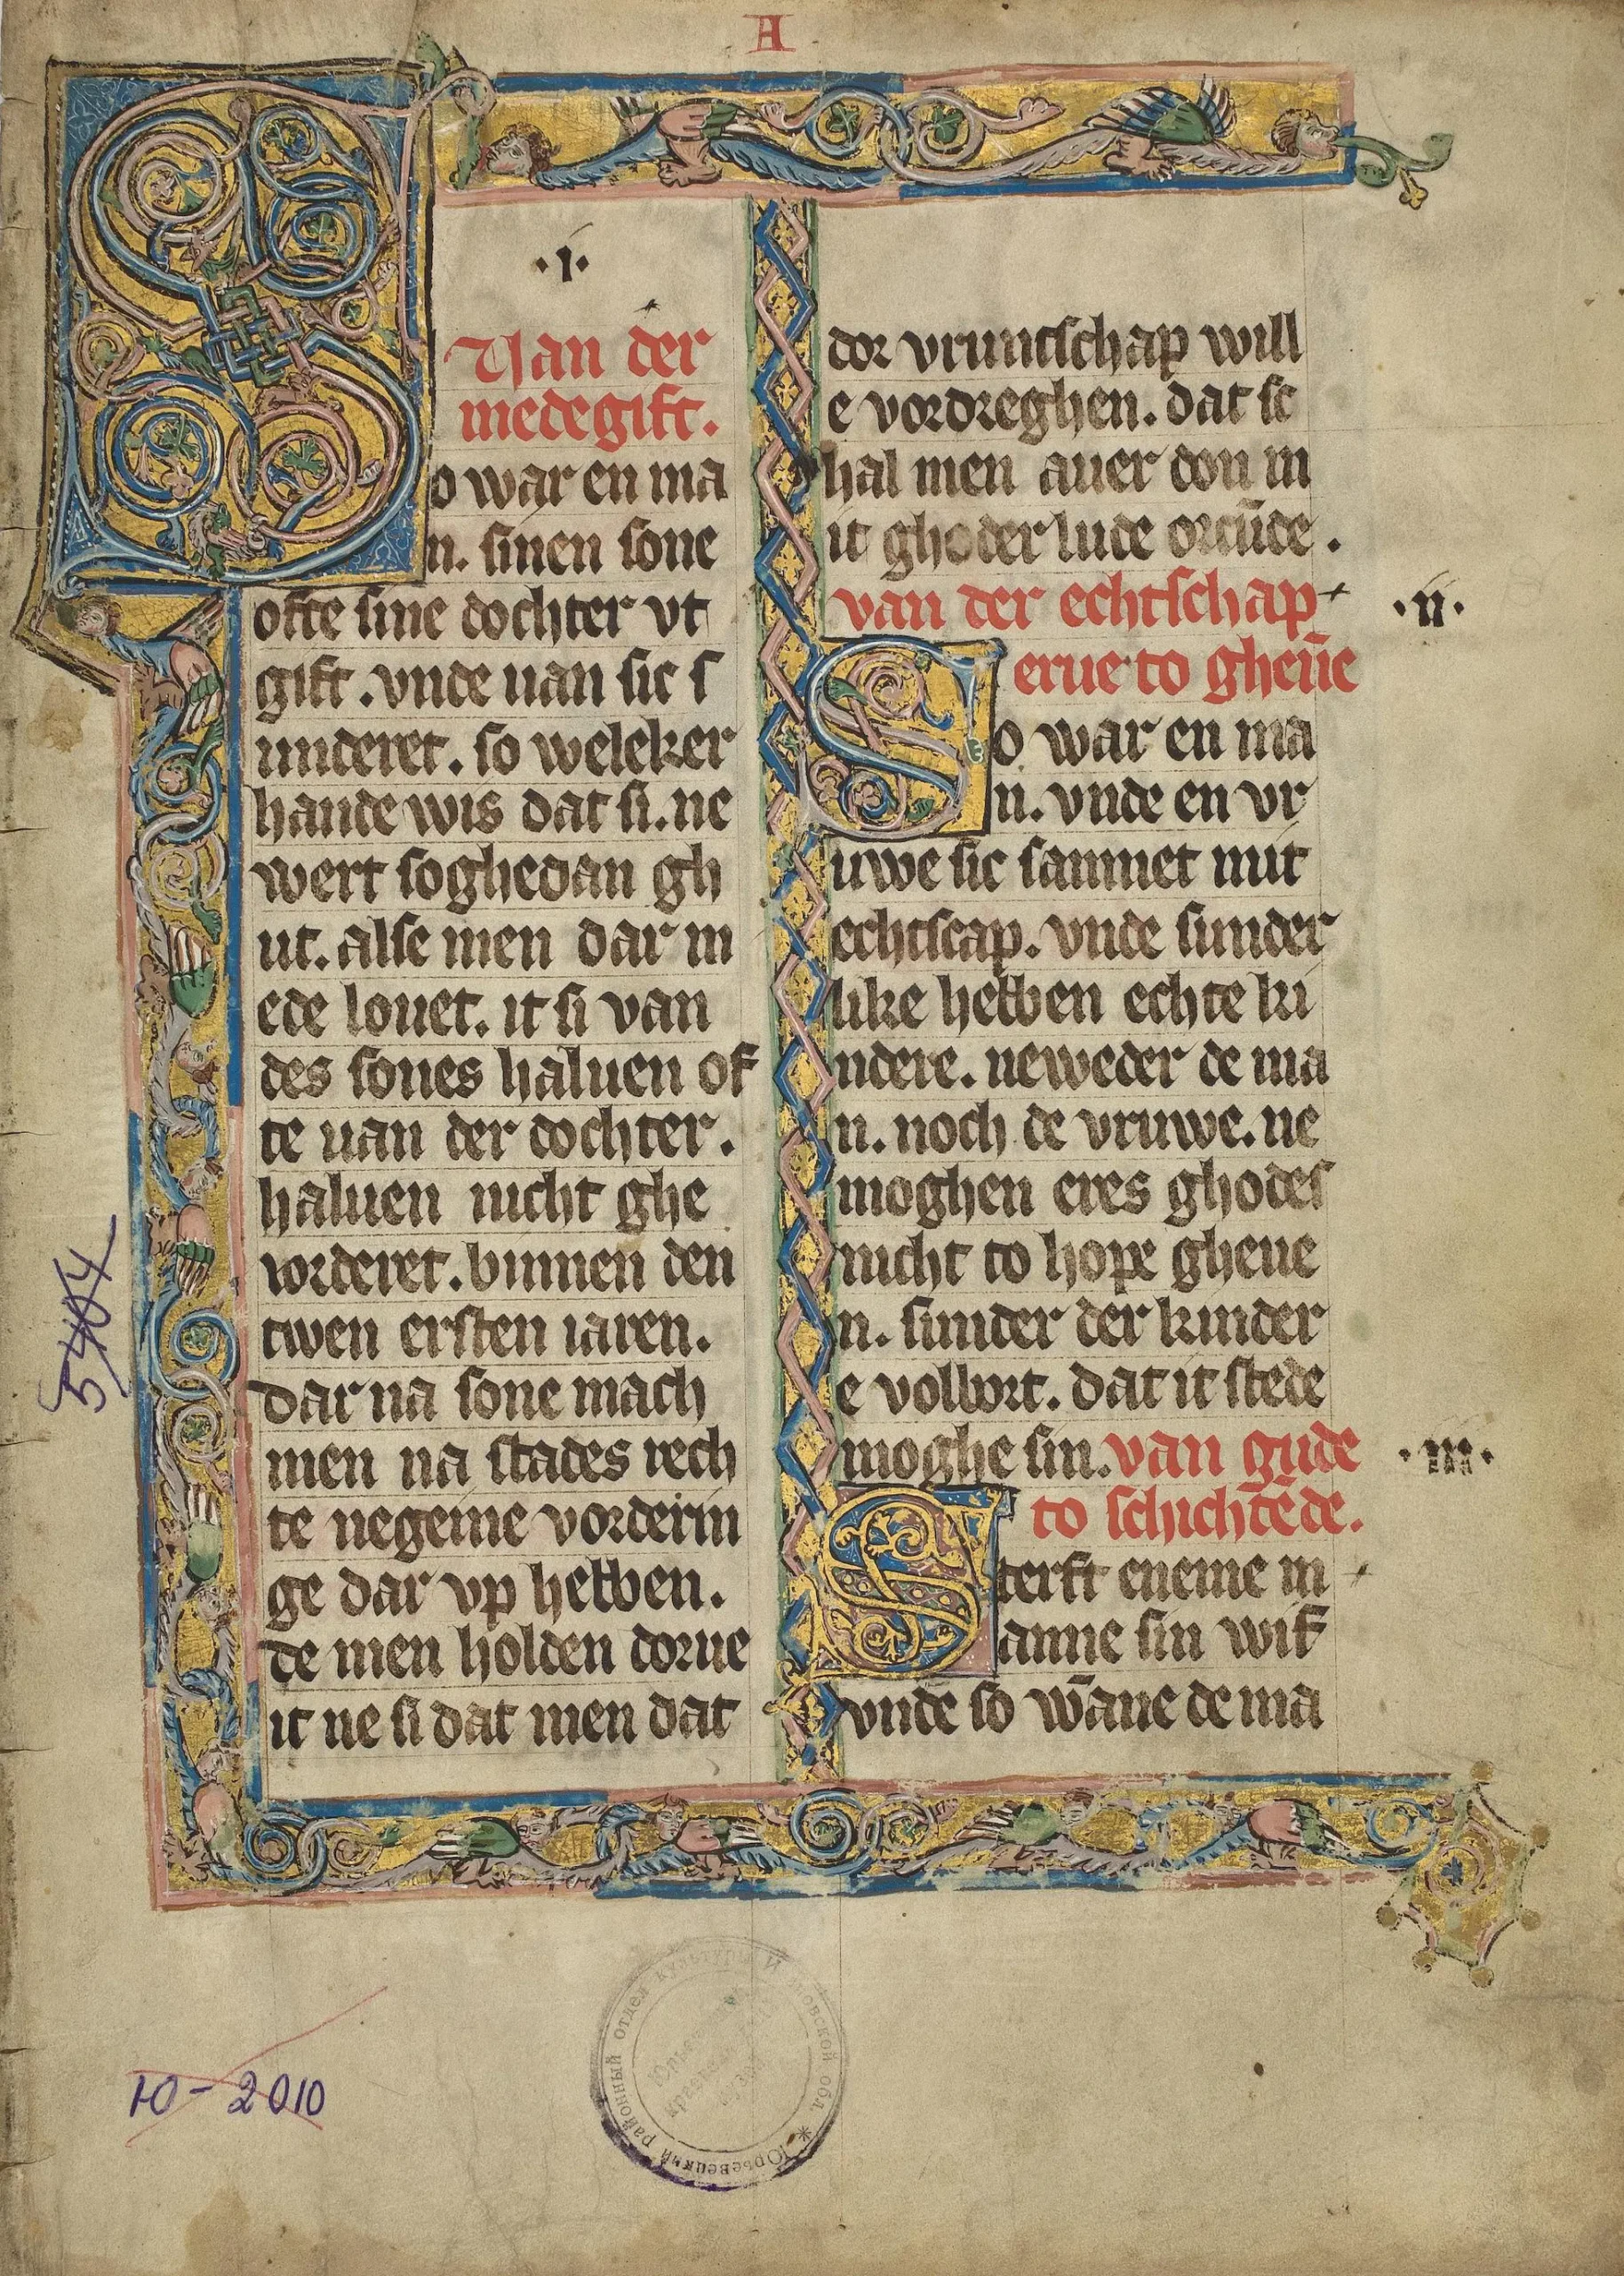 A
·i·
Uan der
medegift.
So war en ma
n. sinen sone
ofte sine dochter vt
gift. vnde uan sic s
underet. so weleker
hande wis dat si. ne
wert soghedan gh
ut. alse men dar m
ede louet. it si van
des sones haluen of
te uan der dochter.
haluen nicht ghe
vorderet. binnen den
twen ersten iaren.
dar na sone mach
men na stades rech
te negeine vorderin
ge dar vp hebben.
de men holden dorue
it ne si dat men dat
dor vruntschap will
e vordreghen. dat sc
hal men auer don m
it ghoder lude orcūde.
van der echtschap
·ii·
erue to gheuē
So war en ma
n. vnde en vr
uwe sic samnet mit
echtscap. vnde sunder
like hebben echte ki
ndere. neweder de ma
n. noch de vruwe. ne
moghen eres ghodes
nicht to hope gheue
n. sunder der kinder
e volbort. dat it stede
moghe sin. van gude
·iii·
to schichtēde.
Sterft eneme m
anne sin wif
vnde so wāne de ma
5464
Ю-2010
Юрьевецкий районный отдел культуры Ивановской обл. *